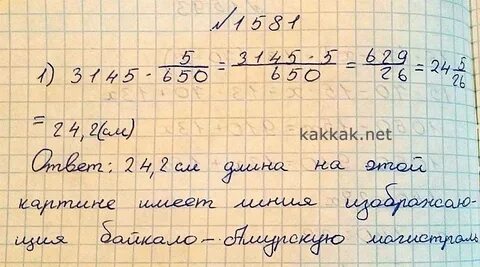 №1581
1) 3145 · 5/650 = 3145 · 5/650 = 629/26 = 24 5/26
= 24,2(см)
kakkak.net
Ответ: 24,2 см длина на этой
картине имеет линия изображаю-
щия байкало-Амурскую магистраль